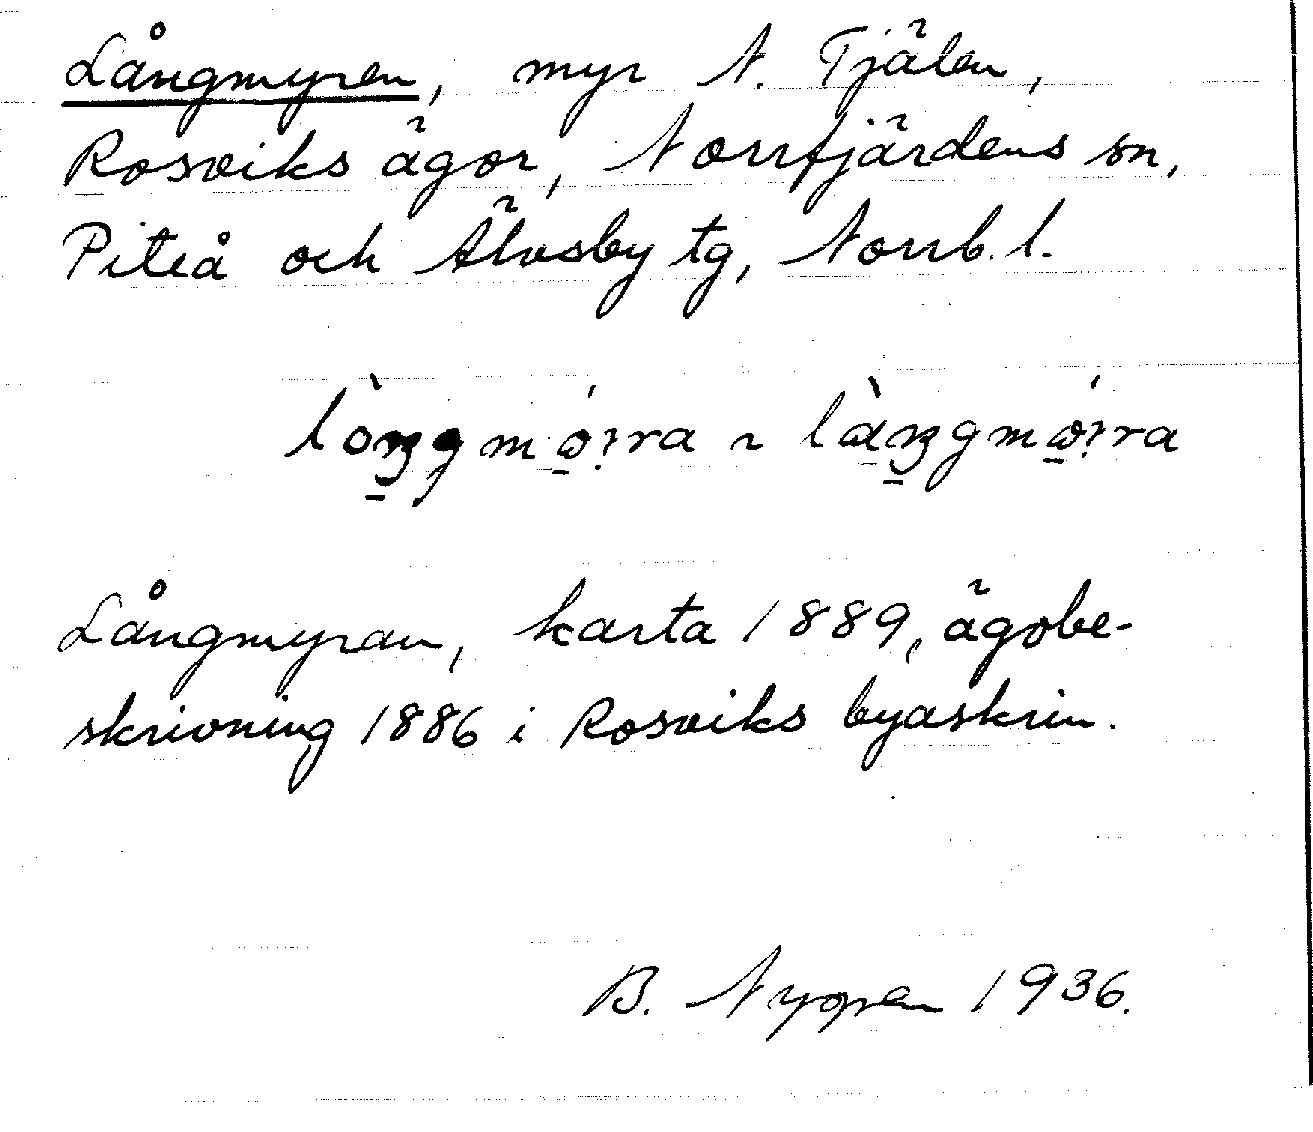 Långmyren, myr N. Tjälen,
Rosviks ägor, Norrfjärdens sn,
Piteå och Älvsby tg, Norrb. l.
~
Långmyran, karta 1889, ägobe-
skrivning 1886 i Rosviks byaskrin.
B. Nygren 1936.